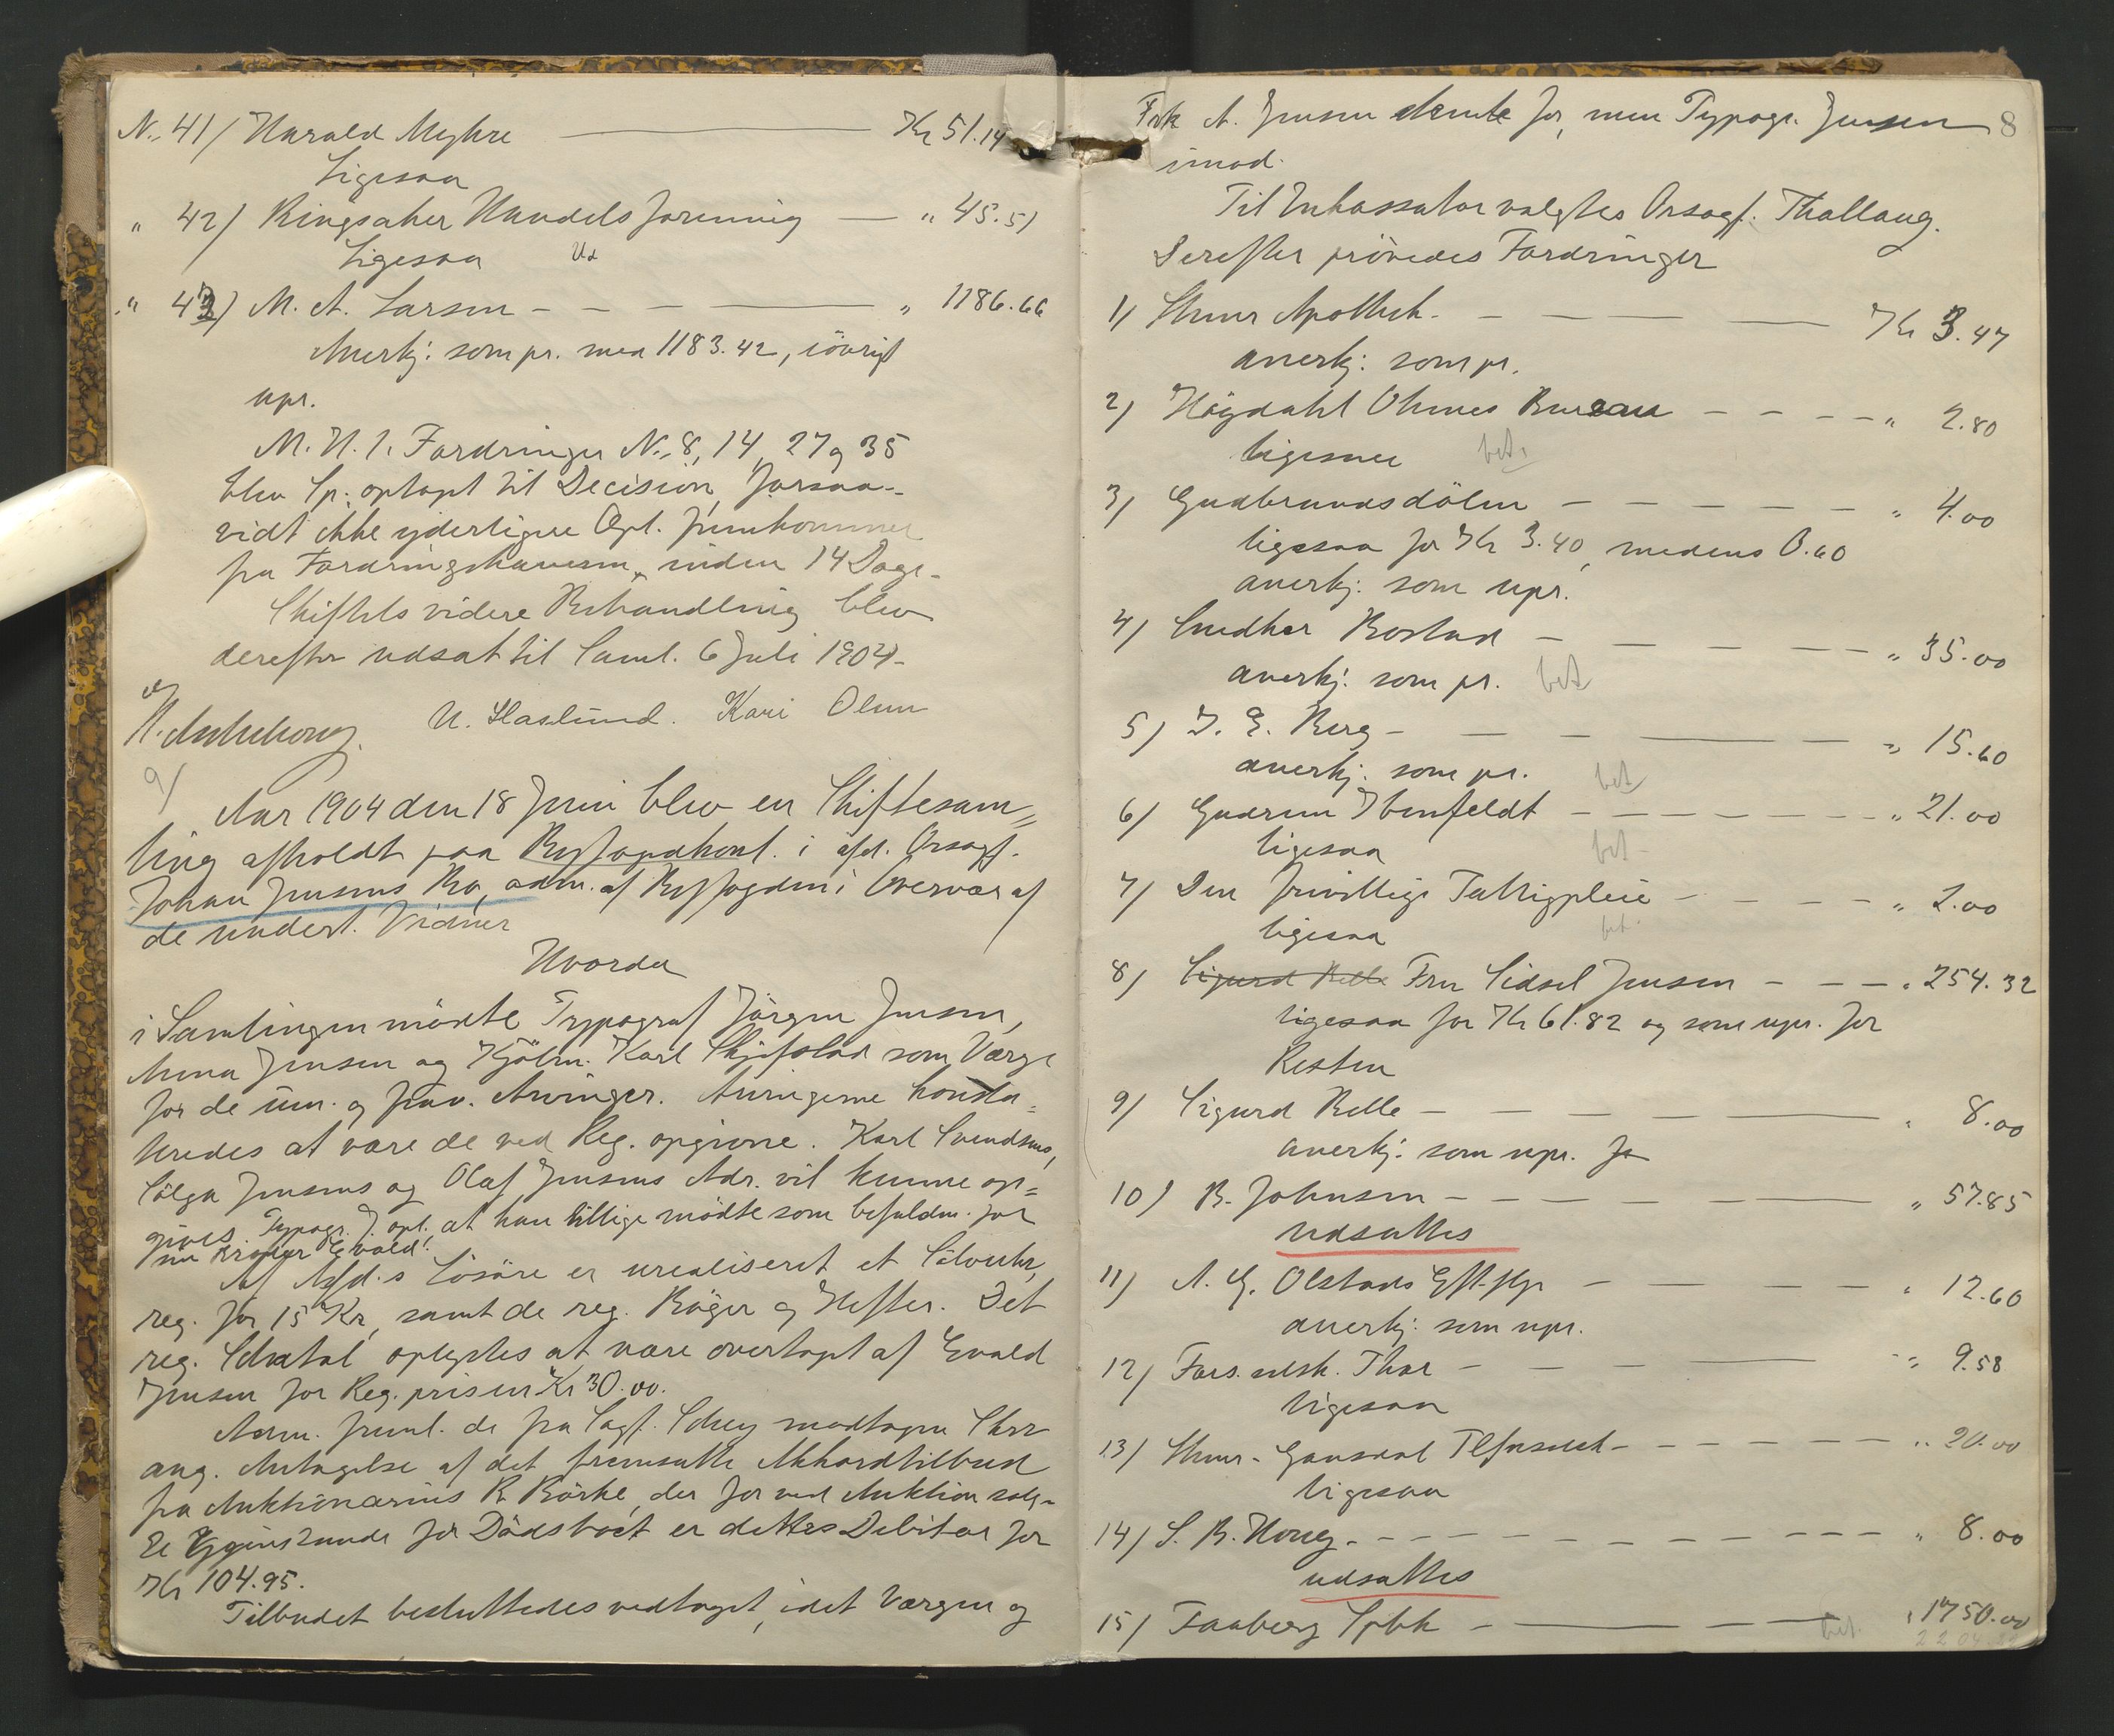 N. 41/ Harald Myhre Kr 51.14
Ligesaa
" 42/ Ringsaker Handelsforening " 45.51
Ligesaa
" 43/ M. A. Larsen " 1186.66
Anerkj: som pr. med 1183.42, iövrigt
upr.
M. H. t. Fordringer N. 8, 14, 27 og 35
blev Sp. optagt til Decision, forsaa-
vidt ikke yderligere Opl. fremkommer
fra Fordringshaveren inden 14 Dage.
Skiftets videre Behandling blev
derefter udsat til Saml. 6 Juli 1904.
N. Haslund. Kari Olsen
9/
Aar 1904 den 18 Juni blev en Skiftesam=
ling afholdt paa Byfogdkont. i afd. Orsagf.
Johan Jensens Bo, adm. af Byfogden i Overvær af
de undert. Vidner
Hvorda
i Samlingen mödte Typograf Jörgen Jensen,
Anna Jensen og Karl som Værge
for de um. og frav. Arvinger. Arvingerne konsta=
teredes at være de ved Reg. opgivne. Karl Svendsens,
Jensens og Olaf Jensens Adr. vil kunne op=
gives. Typogr. J. opl. at han tillige mödte som befuldm. for
sin Broder Evald.
Af Afd.s Lösöre er urealiseret et Sölvuhr,
reg. for 15 Kr, samt de reg. Böger og Hefter. Det
reg. oplystes at være overtagt af Evald
Jensen for Reg. prisen Kr 30.00.
Adm. freml. de fra Sagf. modtagne Skr
ang. Antagelse af det fremsatte Akkordtilbud
fra Auktionarius R. Börke, der for ved Auktion solg-
te Gjenstande for Dödsboet er dettes Debitor for
Kr 104.95.
Tilbudet besluttedes vedtaget, idet Værgen og
8
Frk A. Jensen stemte for, men Typogr. Jensen
imod.
Til Inkassator valgtes Orsagf. Thallaug.
Derefter prövedes Fordringer
1/ Apothek. Kr 3.47
anerkj: som pr.
2/ Högdahl Ohmes Bureau " 2.80
ligesaa bet.
3/ Gudbrandsdölen " 4.00
ligesaa for Kr 3.40, medens 0.60
anerkj: som upr.
4/ Snedker Bostad " 35.00
anerkj: som pr. bet
5/ J. E. Berg " 15.60
anerkj: som pr. bet
6/ Gudrun Ibenfeldt " 21.00
ligesaa bet
7/ Den frivillige Fattigpleie " 2.00
ligesaa bet
8/ Sigurd Belle Fru Sidsel Jensen " 254.32
ligesaa for Kr 61.82 og som upr. for
Resten
9/ Sigurd Belle " 8.00
anerkj: som upr. Ja
10/ B. Johnsen " 57.85
udsattes
11/ A. G. Olstads Eftflgr " 12.60
anerkj: som upr.
12/ Fors. selsk. Thor " 9.58
ligesaa
13/ Gausdal Tlfselsk " 20.00
ligesaa
14/ S. B. " 8.00
udsattes
15/ Faaberg Spbk bet. " 1750.00